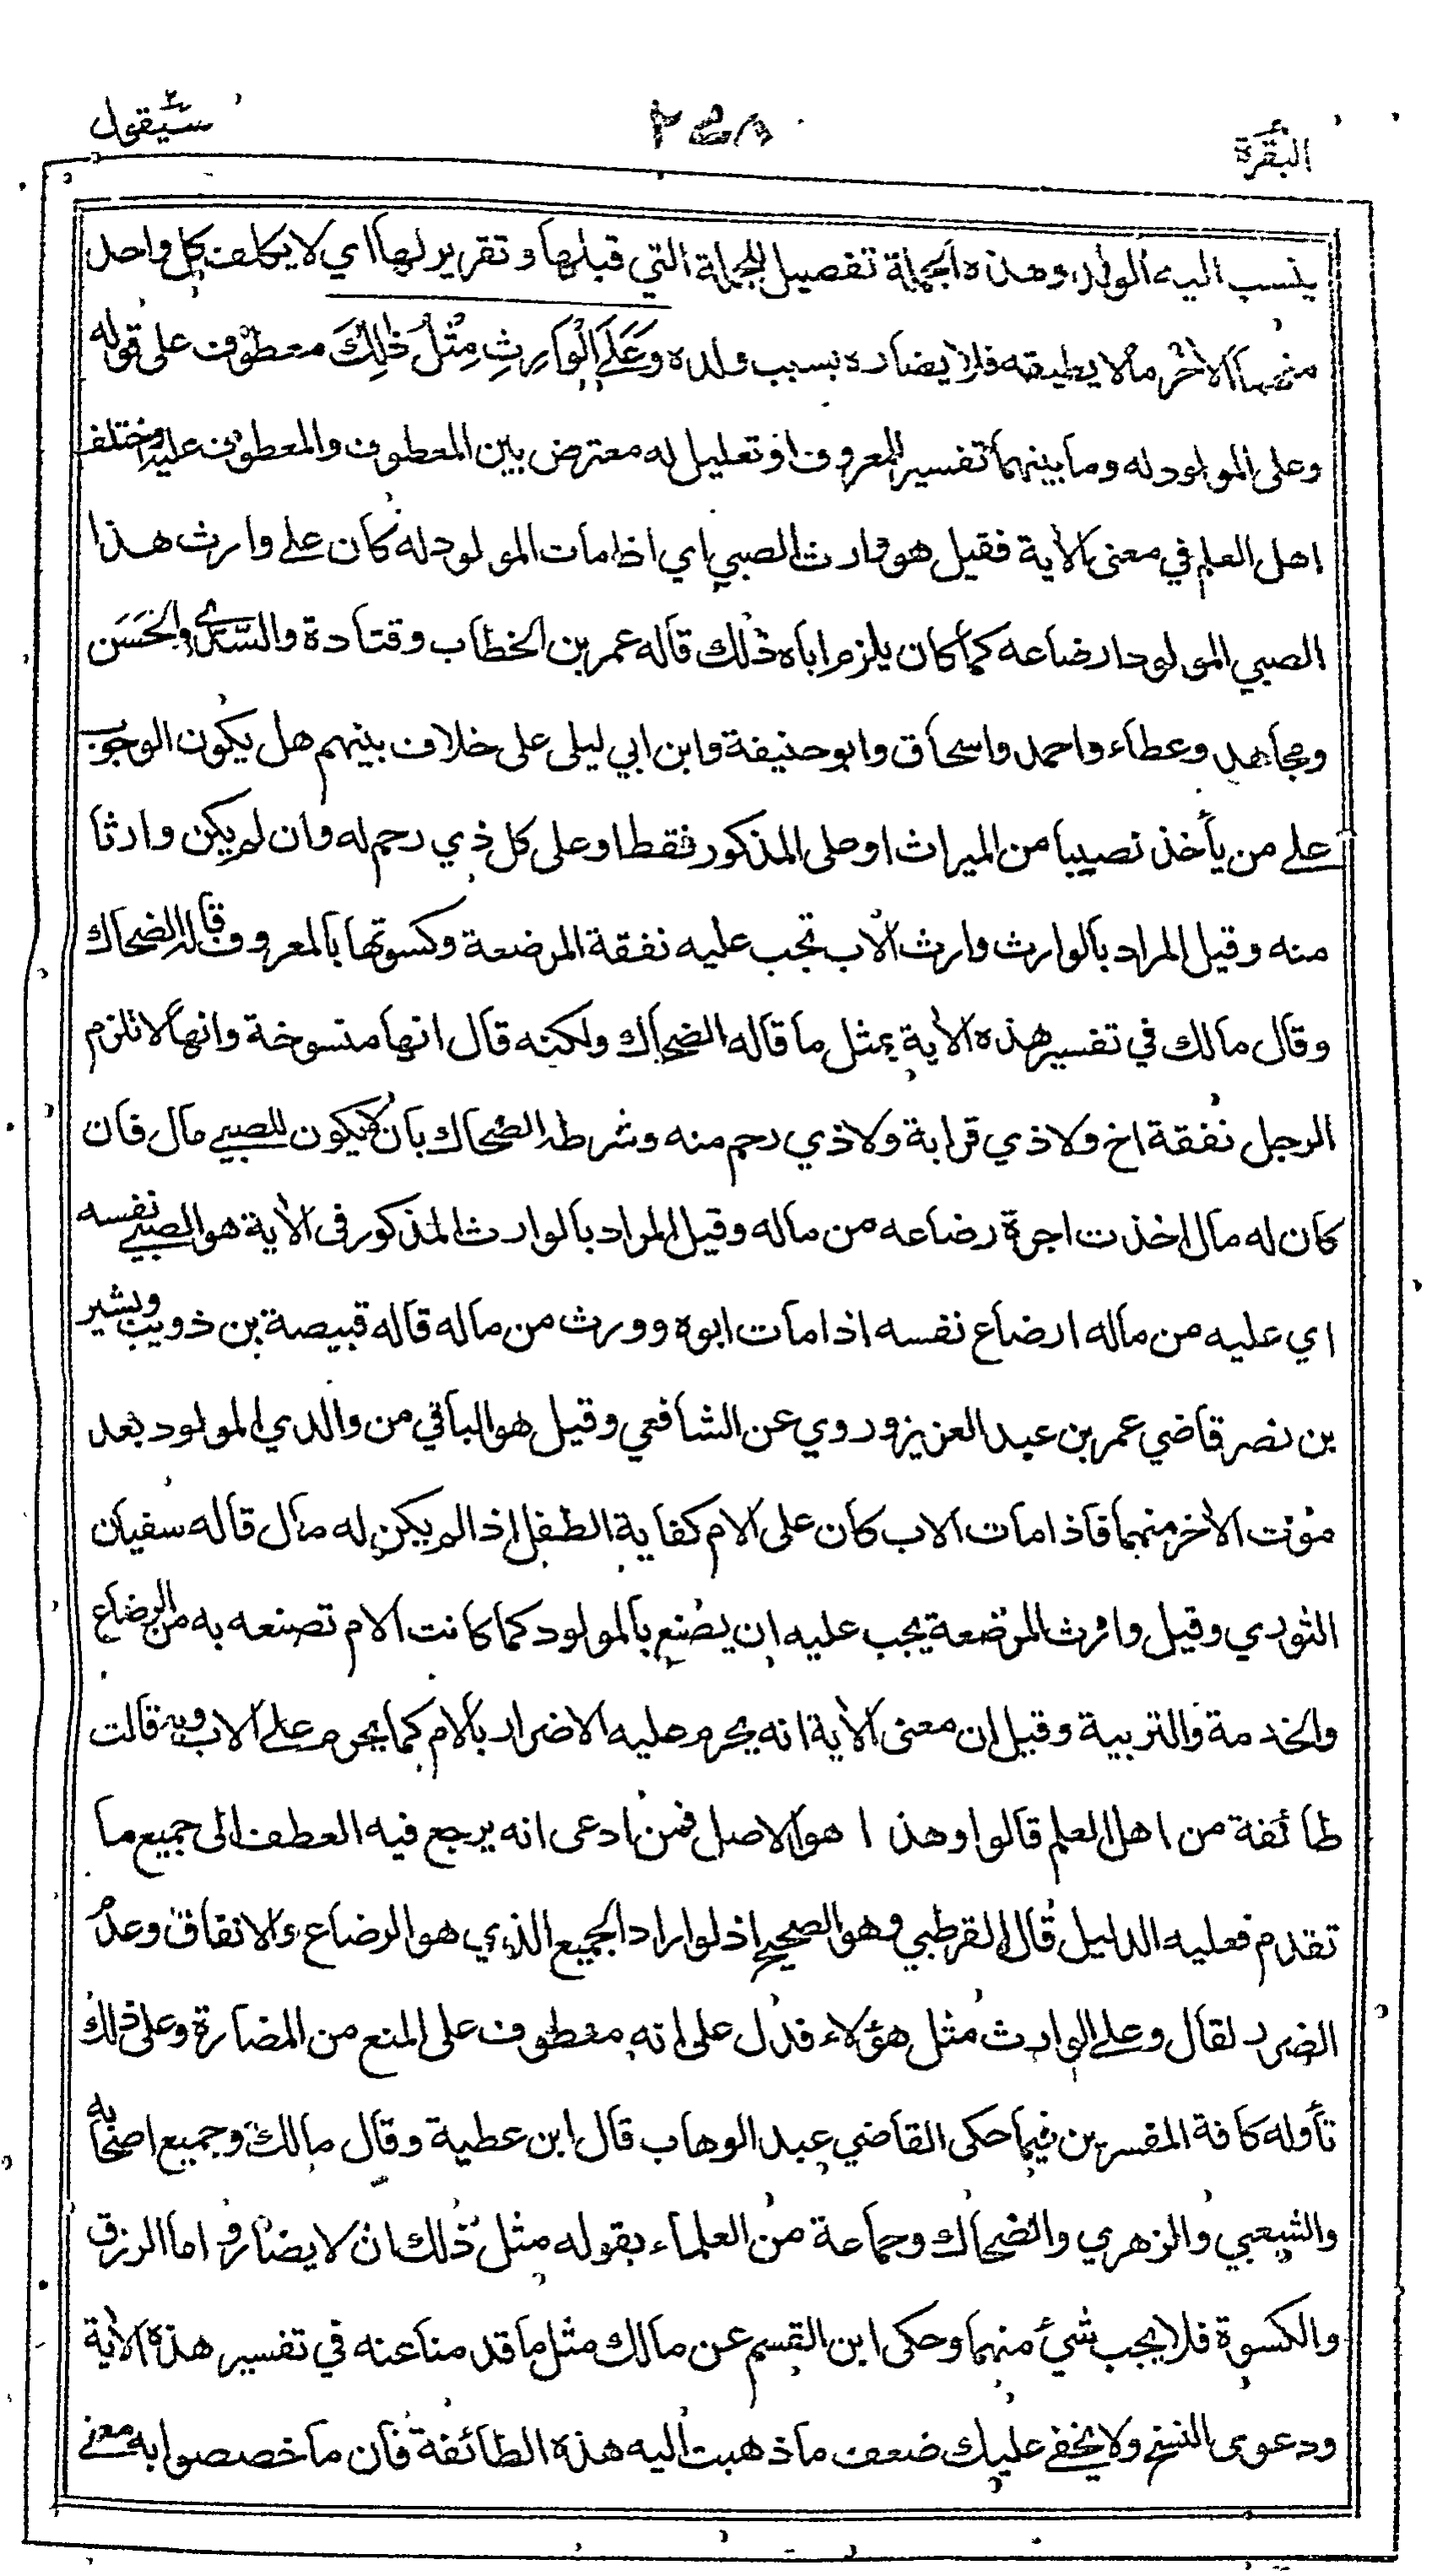 البقرة
سيقول
ينسب اليه الولد وهذه الجملة تفصيل للجملة التي قبلها وتقرير لها اي لا يكلف كل واحد
منهما الاخر ما لا يطيقه فلا يضاره بسبب ولده وَعَلَى الْوَارِثِ مِثْلُ ذَلِكَ معطوف على قوله
وعلى المولود له وما بينهما تفسير للمعروف او تعليل له معترض بين المعطوف والمعطوف عليه واختلف
اهل العلم في معنى الآية فقيل هو وارث الصبي اي اذا مات المولود له كان على وارث هذا
الصبي المولود ارضاعه كما كان يلزم اباه ذلك قاله عمر بن الخطاب وقتادة والسدي والحَسَن
ومجاهد وعطاء واحمد واسحاق وابو حنيفة وابن ابي ليلى على خلاف بينهم هل يكون الوجوب
على من يأخذ نصيبا من الميراث او على المذكور فقط او على كل ذي رحم له وان لم يكن وارثا
منه وقيل المراد بالوارث وارث الاب تجب عليه نفقة المرضعة وكسوتها بالمعروف قاله الضحاك
وقال مالك في تفسير هذه الآية بمثل ما قاله الضحاك ولكنه قال انها منسوخة وانها لا تلزم
الرجل نفقة اخ ولا ذي قرابة ولا ذي رحم منه وشرطه الضحاك بان لا يكون للصبي مال فان
كان له مال اخذت اجرة رضاعه من ماله وقيل المراد بالوارث المذكور في الآية هو الصبي نفسه
اي عليه من ماله ارضاع نفسه اذا مات ابوه وورث من ماله قاله قبيصة بن ذويب وبشير
بن نصر قاضي عمر بن عبد العزيز وروي عن الشافعي وقيل هو الباقي من والدي المولود بعد
موت الاخر منهما فاذا مات الاب كان على الام كفاية الطفل اذا لم يكن له مال قاله سفيان
الثوري وقيل وارث المرضعة يجب عليه ان يصنع بالمولود كما كانت الام تصنعه به من الرضاع
والخدمة والتربية وقيل ان معنى الآية انه يحرم عليه الاضرار بالام كما يحرم على الاب وبه قالت
طائفة من اهل العلم قالوا وهذا هو الاصل فمن ادعى انه يرجع فيه العطف الى جميع ما
تقدم فعليه الدليل قال القرطبي وهو الصحيح اذ لو اراد الجميع الذي هو الرضاع والانفاق وعدم
الضرر لقال وعلى الوارث مثل هؤلاء فدل على انه معطوف على المنع من المضارة وعلى ذلك
تأوله كافة المفسرين فيما حكى القاضي عبد الوهاب قال ابن عطية وقال مالك وجميع اصحابه
والشعبي والزهري والضحاك وجماعة من العلماء بقوله مثل ذلك ان لا يضار واما الرزق
والكسوة فلا يجب شيء منهما وحكى ابن القسم عن مالك مثل ما قدمنا عنه في تفسير هذه الآية
ودعوى النسخ ولا يخفى عليك ضعف ما ذهبت اليه هذه الطائفة فان ما خصصوا به معنى